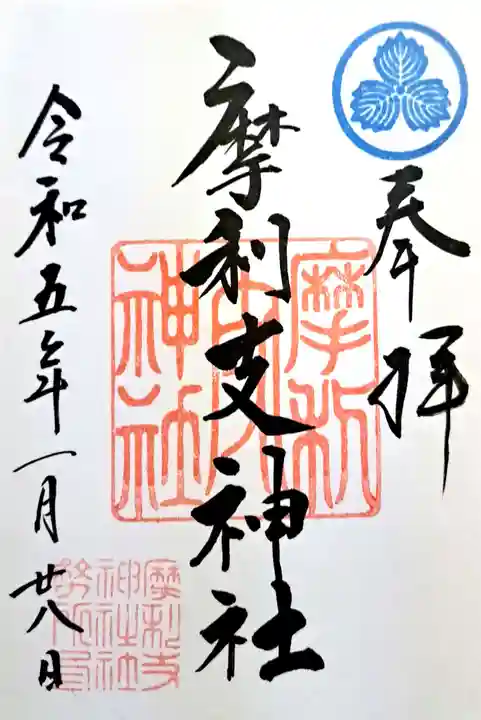 奉拝
摩利支神社
令和五年一月廿八日
摩利支神社
摩利支
神社社
務所印